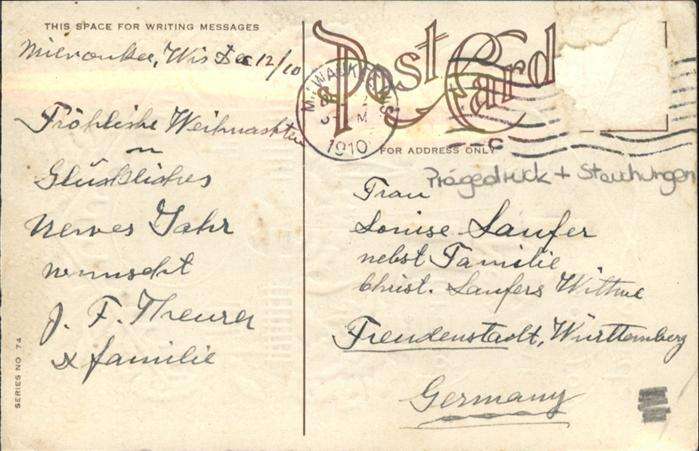 THIS SPACE FOR WRITING MESSAGES
Post Card
Milwaukee, Wis Dec 12/10
MILWAUKEE, WIS
1910
FOR ADDRESS ONLY
Prägedruck + Stauchungen
Fröhliche Weihnachten
u
Glückliches
Neues Jahr
wünscht
J. F. Theurer
& familie
Frau
Louise Laufer
nebst Familie
Christ. Laufers Wittwe
Freudenstadt, Württemberg
Germany
SERIES NO 74